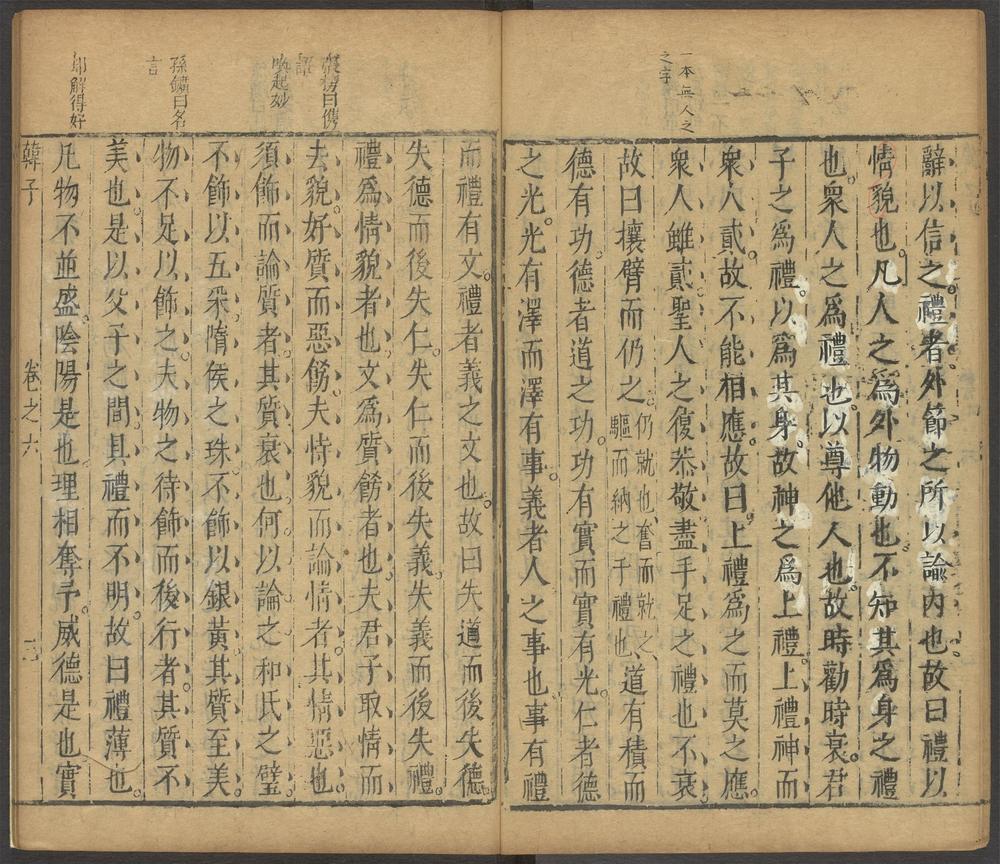 一本無人之
之字
辭以信之禮者外節之所以諭内也故曰禮以
情貌也凡人之爲外物動也不知其爲身之禮
也衆人之爲禮也以尊他人也故時勸時衰君
子之爲禮以爲其身故神之爲上禮上禮神而
衆人貳故不能相應故曰上禮爲之而莫之應
衆人雖貳聖人之復恭敬盡手足之禮也不衰
故曰攘臂而仍之仍就也奮而就之驅而納之于禮也道有積而
德有功德者道之功功有實而實有光仁者德
之光光有澤而澤有事義者人之事也事有禮
而禮有文禮者義之文也故曰失道而後失德
失德而後失仁失仁而後失義失義而後失禮
禮爲情貌者也文爲質餙者也夫君子取情而
去貌好質而惡餙夫恃貌而論情者其情惡也
須飾而論質者其質衰也何以論之和氏之璧
不飾以五采隋侯之珠不飾以銀黃其質至美
物不足以飾之夫物之待飾而後行者其質不
美也是以父子之間其禮而不明故曰禮薄也
凡物不並盛陰陽是也理相奪予威德是也實
曰儁
語
喚起妙
孫鑛曰名
言
解得好
韓子
卷之六